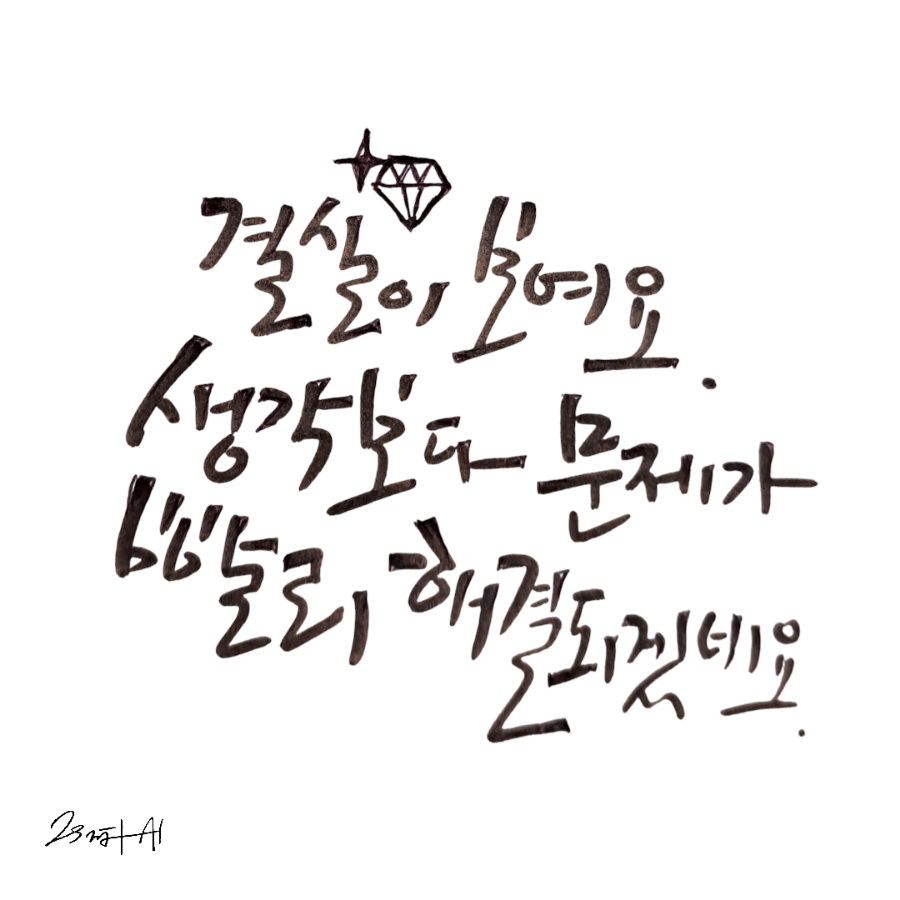 결실이 보여요.
생각보다 문제가
빨리 해결되겠네요.